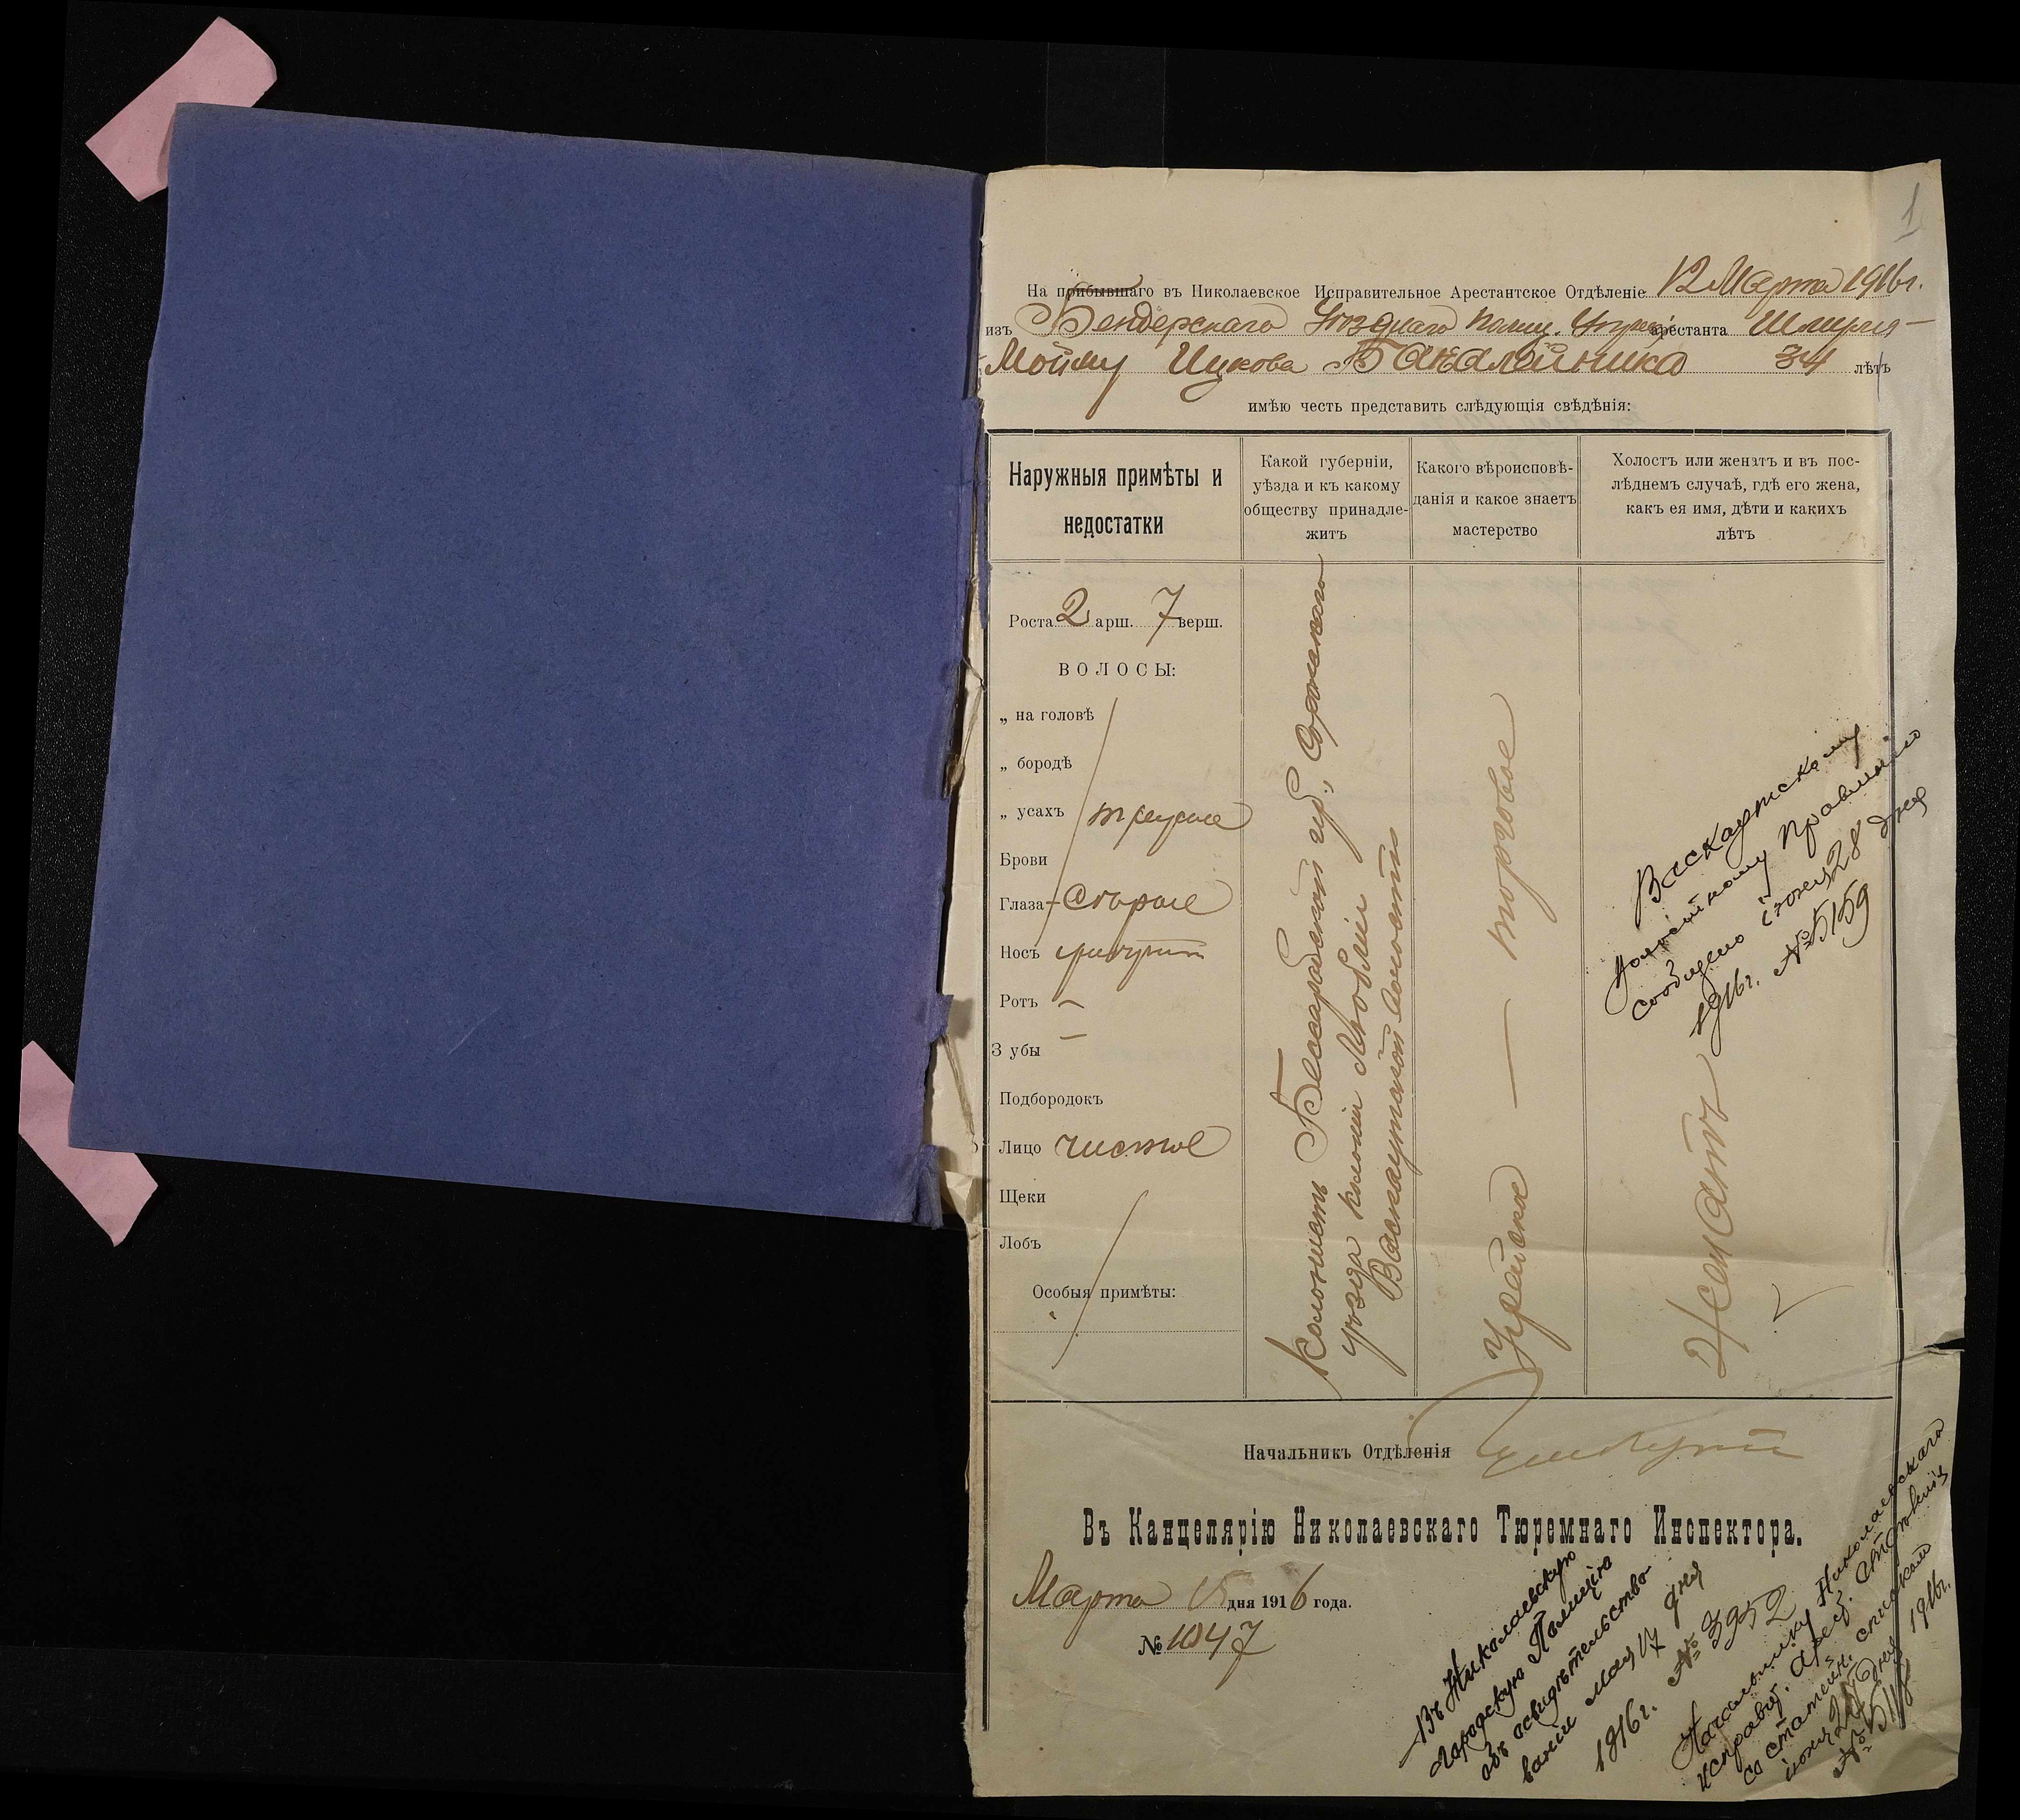 1
На прибывшаго въ Николаевское Исправительное Арестантское Отдѣленіе 12 Марта 1916 г.
изъ Бендерскаго Уѣзднаго Полиц. Управ. арестанта Шмиля-
Мойшу Ицкова Бакалейника 34 лѣтъ
имѣю честь представить слѣдующія свѣдѣнія:
Наружныя примѣты и
недостатки
Какой губерніи,
уѣзда и къ какому
обществу принадле-
житъ
Какого вѣроисповѣ-
данія и какое знаетъ
мастерство
Холостъ или женатъ и въ пос-
лѣднемъ случаѣ, гдѣ его жена,
какъ ея имя, дѣти и какихъ
лѣтъ
Роста 2 арш. 7 верш.
ВОЛОСЫ:
„ на головѣ
„ бородѣ
„ усахъ
Брови
Глаза
Носъ
Ротъ -
Зубы -
Подбородокъ
Лицо чистое
Щеки
Лобъ
Особыя примѣты:
колонистъ Бессарабской губ., Сорокскаго
уѣзда колоніи Люблин
Васкауцкой волости
Іудейско — торговое
Женатъ
Васкауцкому
волостному Правленію
сообщено іюня 28 дня
1916 г. № 5159
Начальникъ Отдѣленія
Въ Канцелярію Николаевскаго Тюремнаго Инспектора.
Марта 15 дня 1916 года.
№ 1047
Въ Николаевскую
Городскую Полицію
объ освидѣтельство-
ваніи мая 17 дня
1916 г. № 3952
Начальнику Николаевскаго
исправ. арест. отдѣленія
со статейн. спискомъ
іюня дня 1916 г.